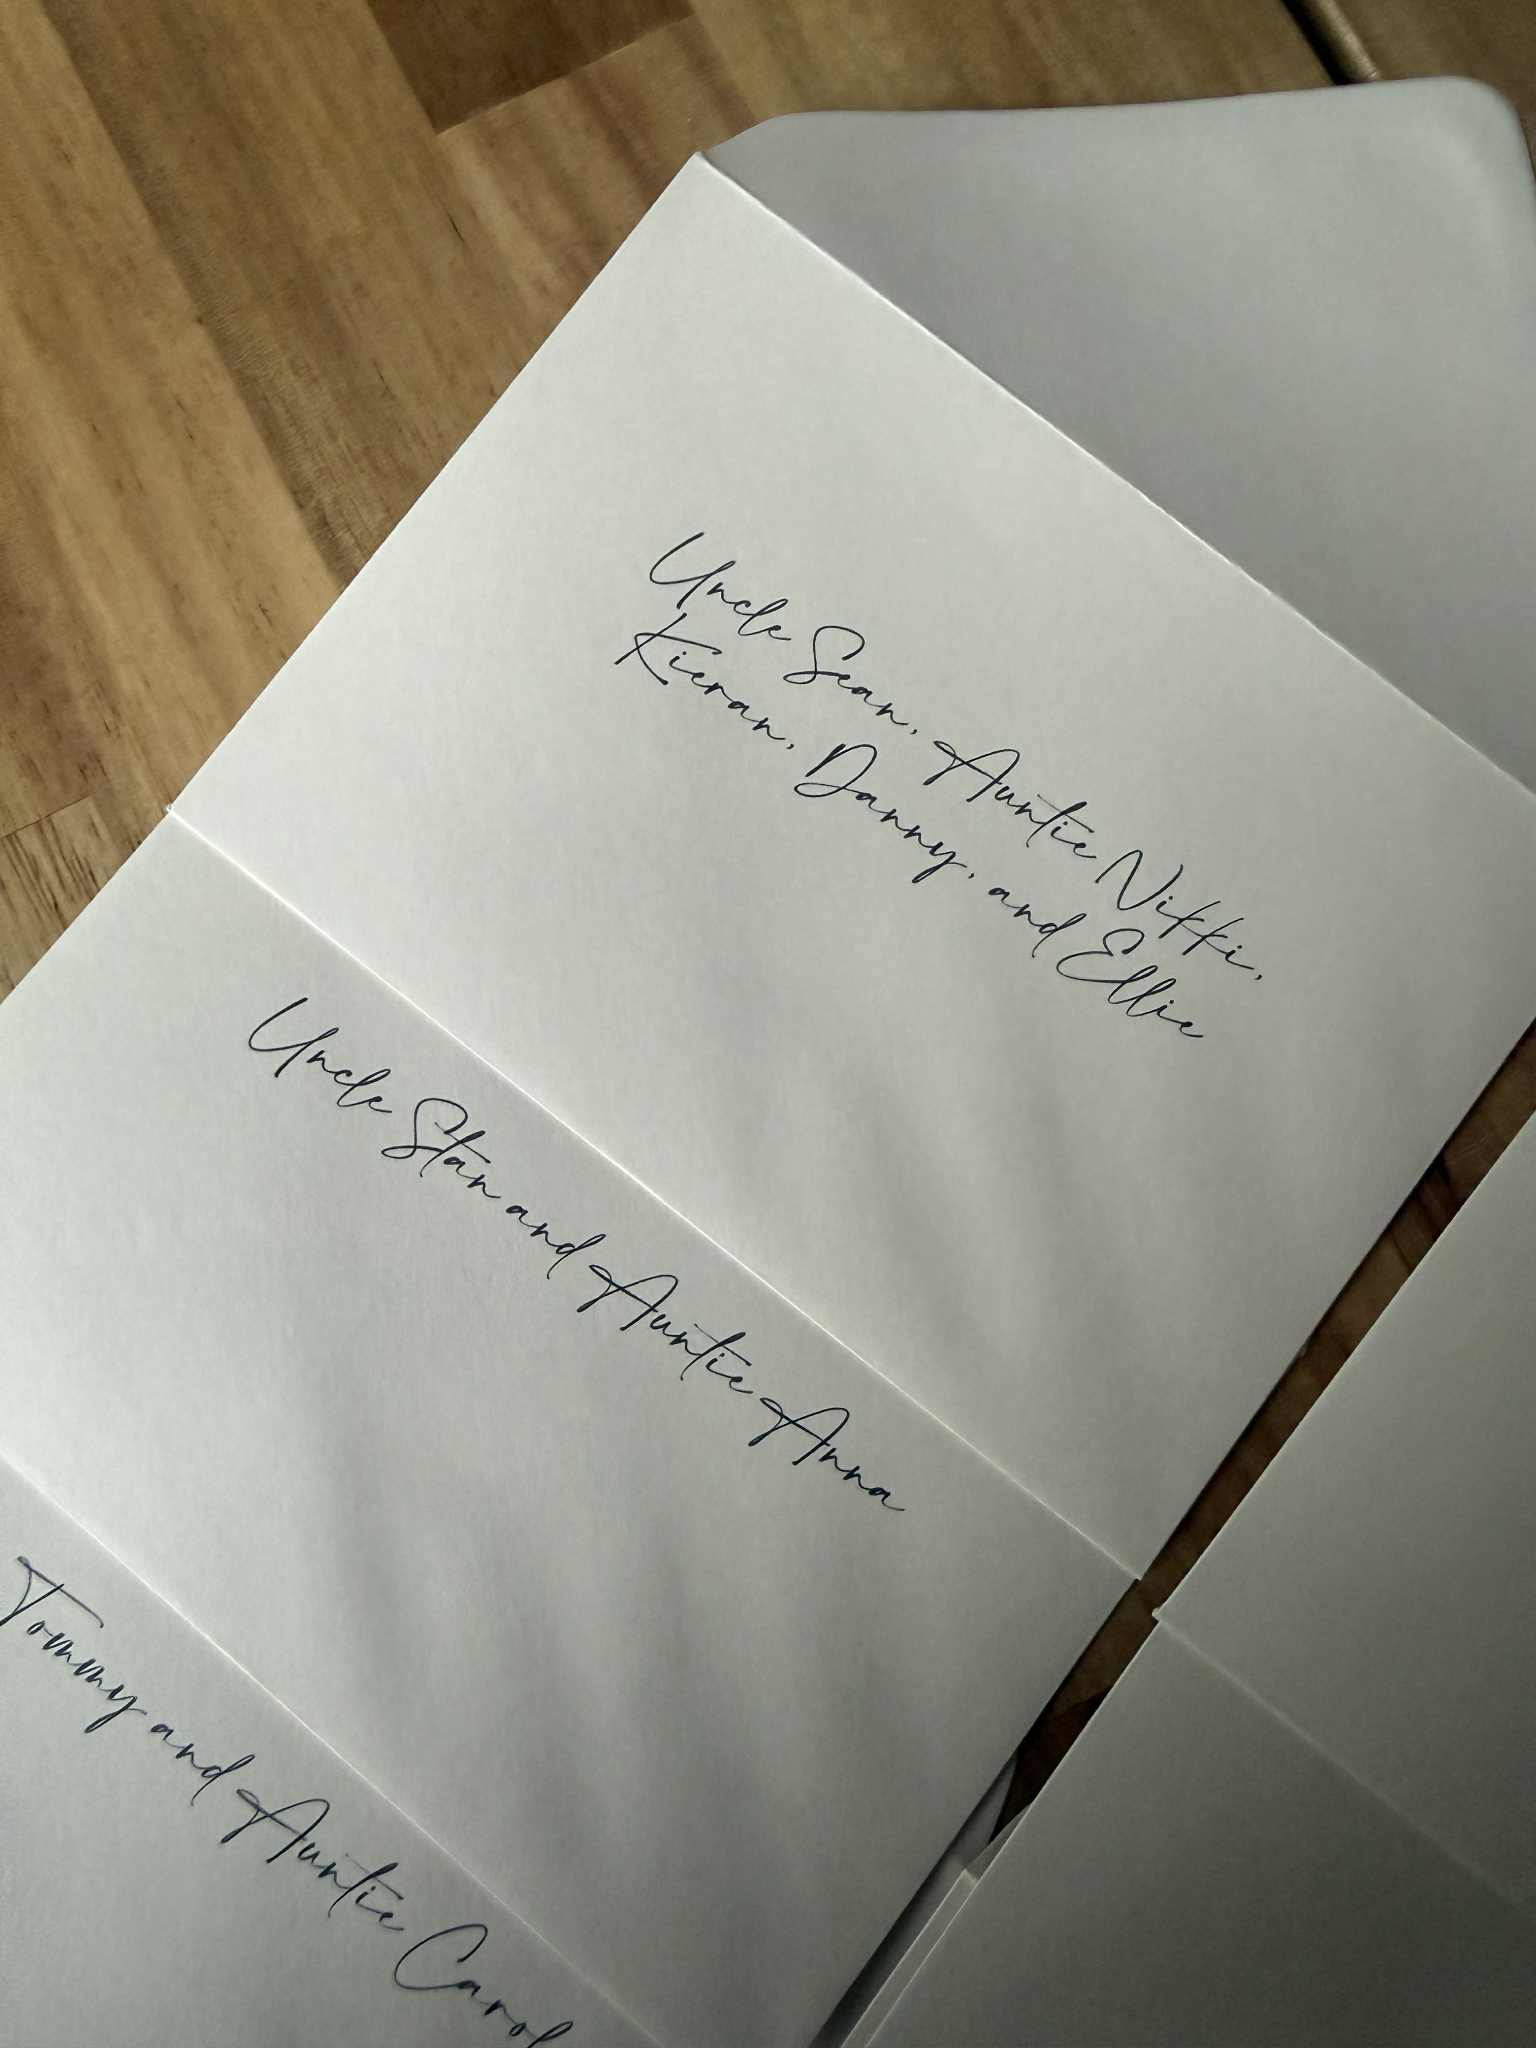 Uncle Sean, Auntie Nikki,
Kieran, Danny, and Ellie
Uncle Stan and Auntie Anna
Tommy and Auntie Carol